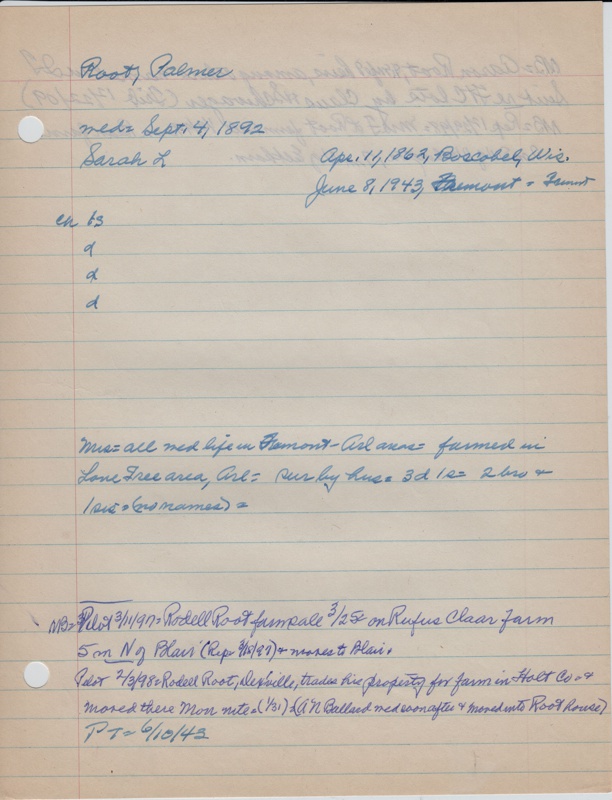 Root, Palmer
med= Sept. 4, 1892
Sarah L Apr. 11, 1862, Boscobel, Wis.
June 8, 1943, Fremont =
ch
d
d
d
Mrs= all med life in Fremont- Arl areas= farmed in
Lone Tree area, Arl= sur by hus= 3d 1s= 2 bro &
1 sis= (no names)=
NB= Pilot 3/11/97= Rodell Root farm sale 3/25= on Rufus Claar farm
5 m N of Blair (Rep= 97)= moves to Blair.
Pilot 2/3/98= Rodell Root, trades his property for farm in Holt Co= &
moved there Mon nite= (1/31)= (A N Ballard med soon after & moved into Root house)
P T= 6/10/43